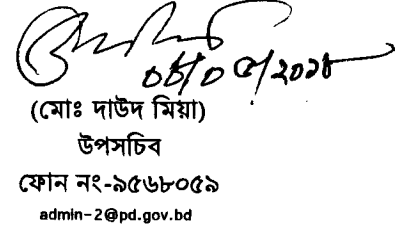 (মোঃ দাউদ মিয়া)
উপসচিব
ফোন নং-৯৫৬৮০৫৯
admin-2@pd.gov.bd